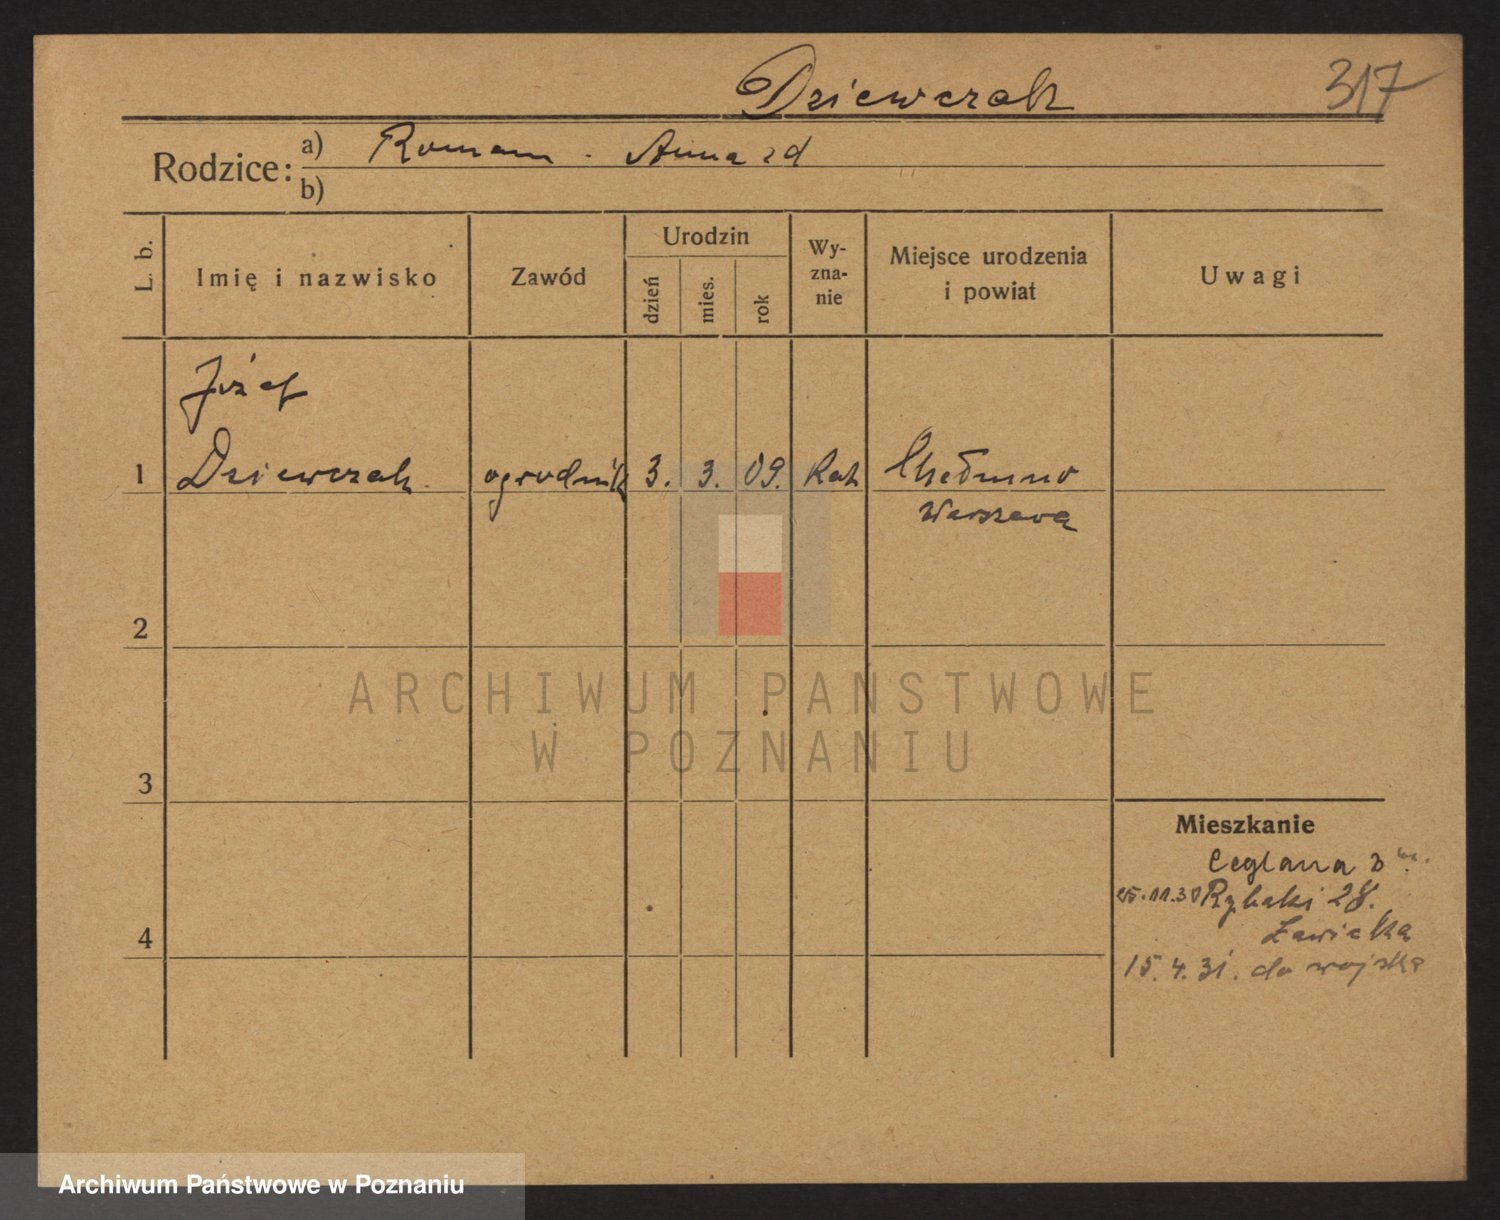 Dziewczak 317
Rodzice: a) Roman - Anna zd
b)
L. b. Imię i nazwisko Zawód Urodzin dzień mies. rok Wy-zna-nie Miejsce urodzenia i powiat Uwagi
Józef
1 Dziewczak ogrodnik 3. 3. 09. Kat Chełmno
Warszawa
2
3
4
Mieszkanie
Ceglana 3
25.11.30 Rybaki 28.
Ławicka
15.4.31. do wojska
ARCHIWUM PAŃSTWOWE
W POZNANIU
Archiwum Państwowe w Poznaniu